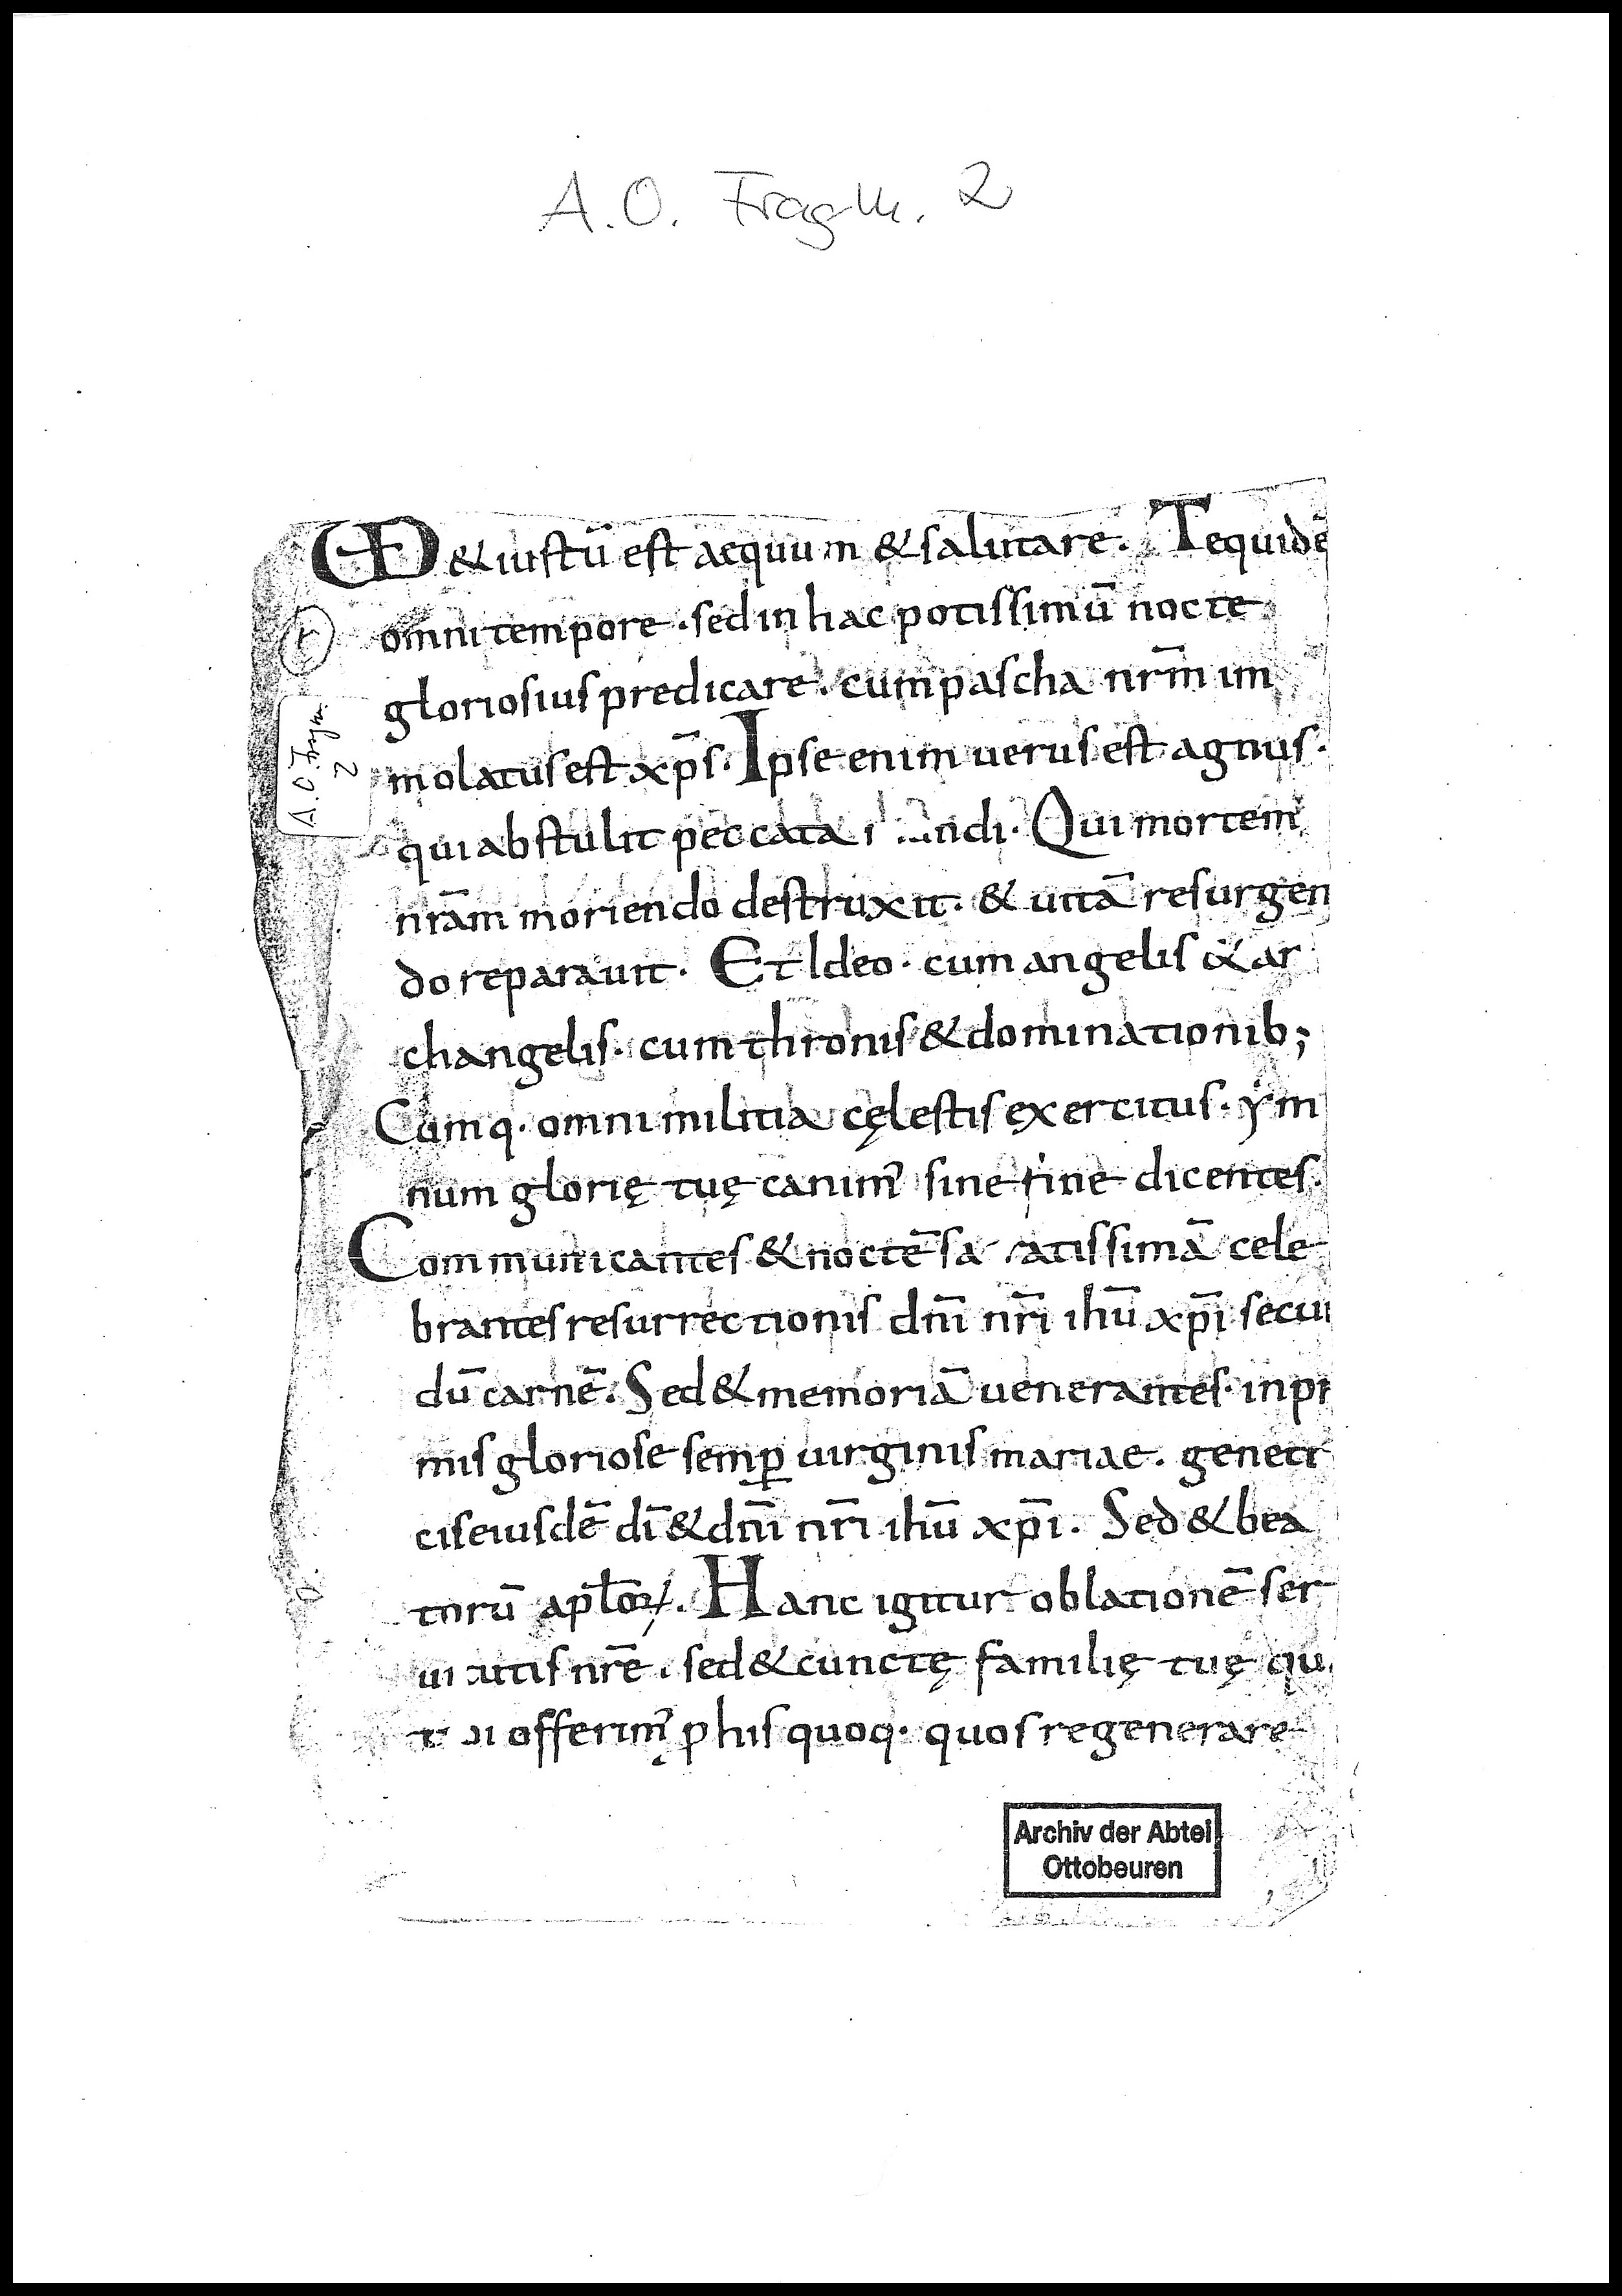 A.O. Fragm. 2
VD & iustū est aequum & salutare. Te quidē
r
omni tempore · sed in hac potissimū nocte
gloriosius predicare · cum pascha nr̄m im
A.O. Fragm. 2
molatus est xp̄s. Ipse enim uerus est agnus ·
qui abstulit peccata ndi. Qui mortem
nr̄am moriendo destruxit · & uitā resurgen
do reparauit. Et Ideo · cum angelis & ar
changelis · cum thronis & dominationib;
Cumq· omni militia cęlestis exercitus · ym
num glorię tuę canim᾿ sine fine dicentes.
Communicantes & noctē sa atissimā cele
brantes resurrectionis dn̄i nr̄i ih̄u xp̄i secu
dū carnē. Sed & memoriā uenerantes · inpr
mis gloriose semꝑ uirginis mariae · genetr
cis eiusdē dī & dn̄i nr̄i ih̄u xp̄i. Sed & bea
torū apl̄oꝝ. Hanc igitur oblationē ser
ui utis nr̄e · sed & cunctę familię tuę qu
t i offerim᾿ p his quoq· quos regenerare
Archiv der Abtei
Ottobeuren